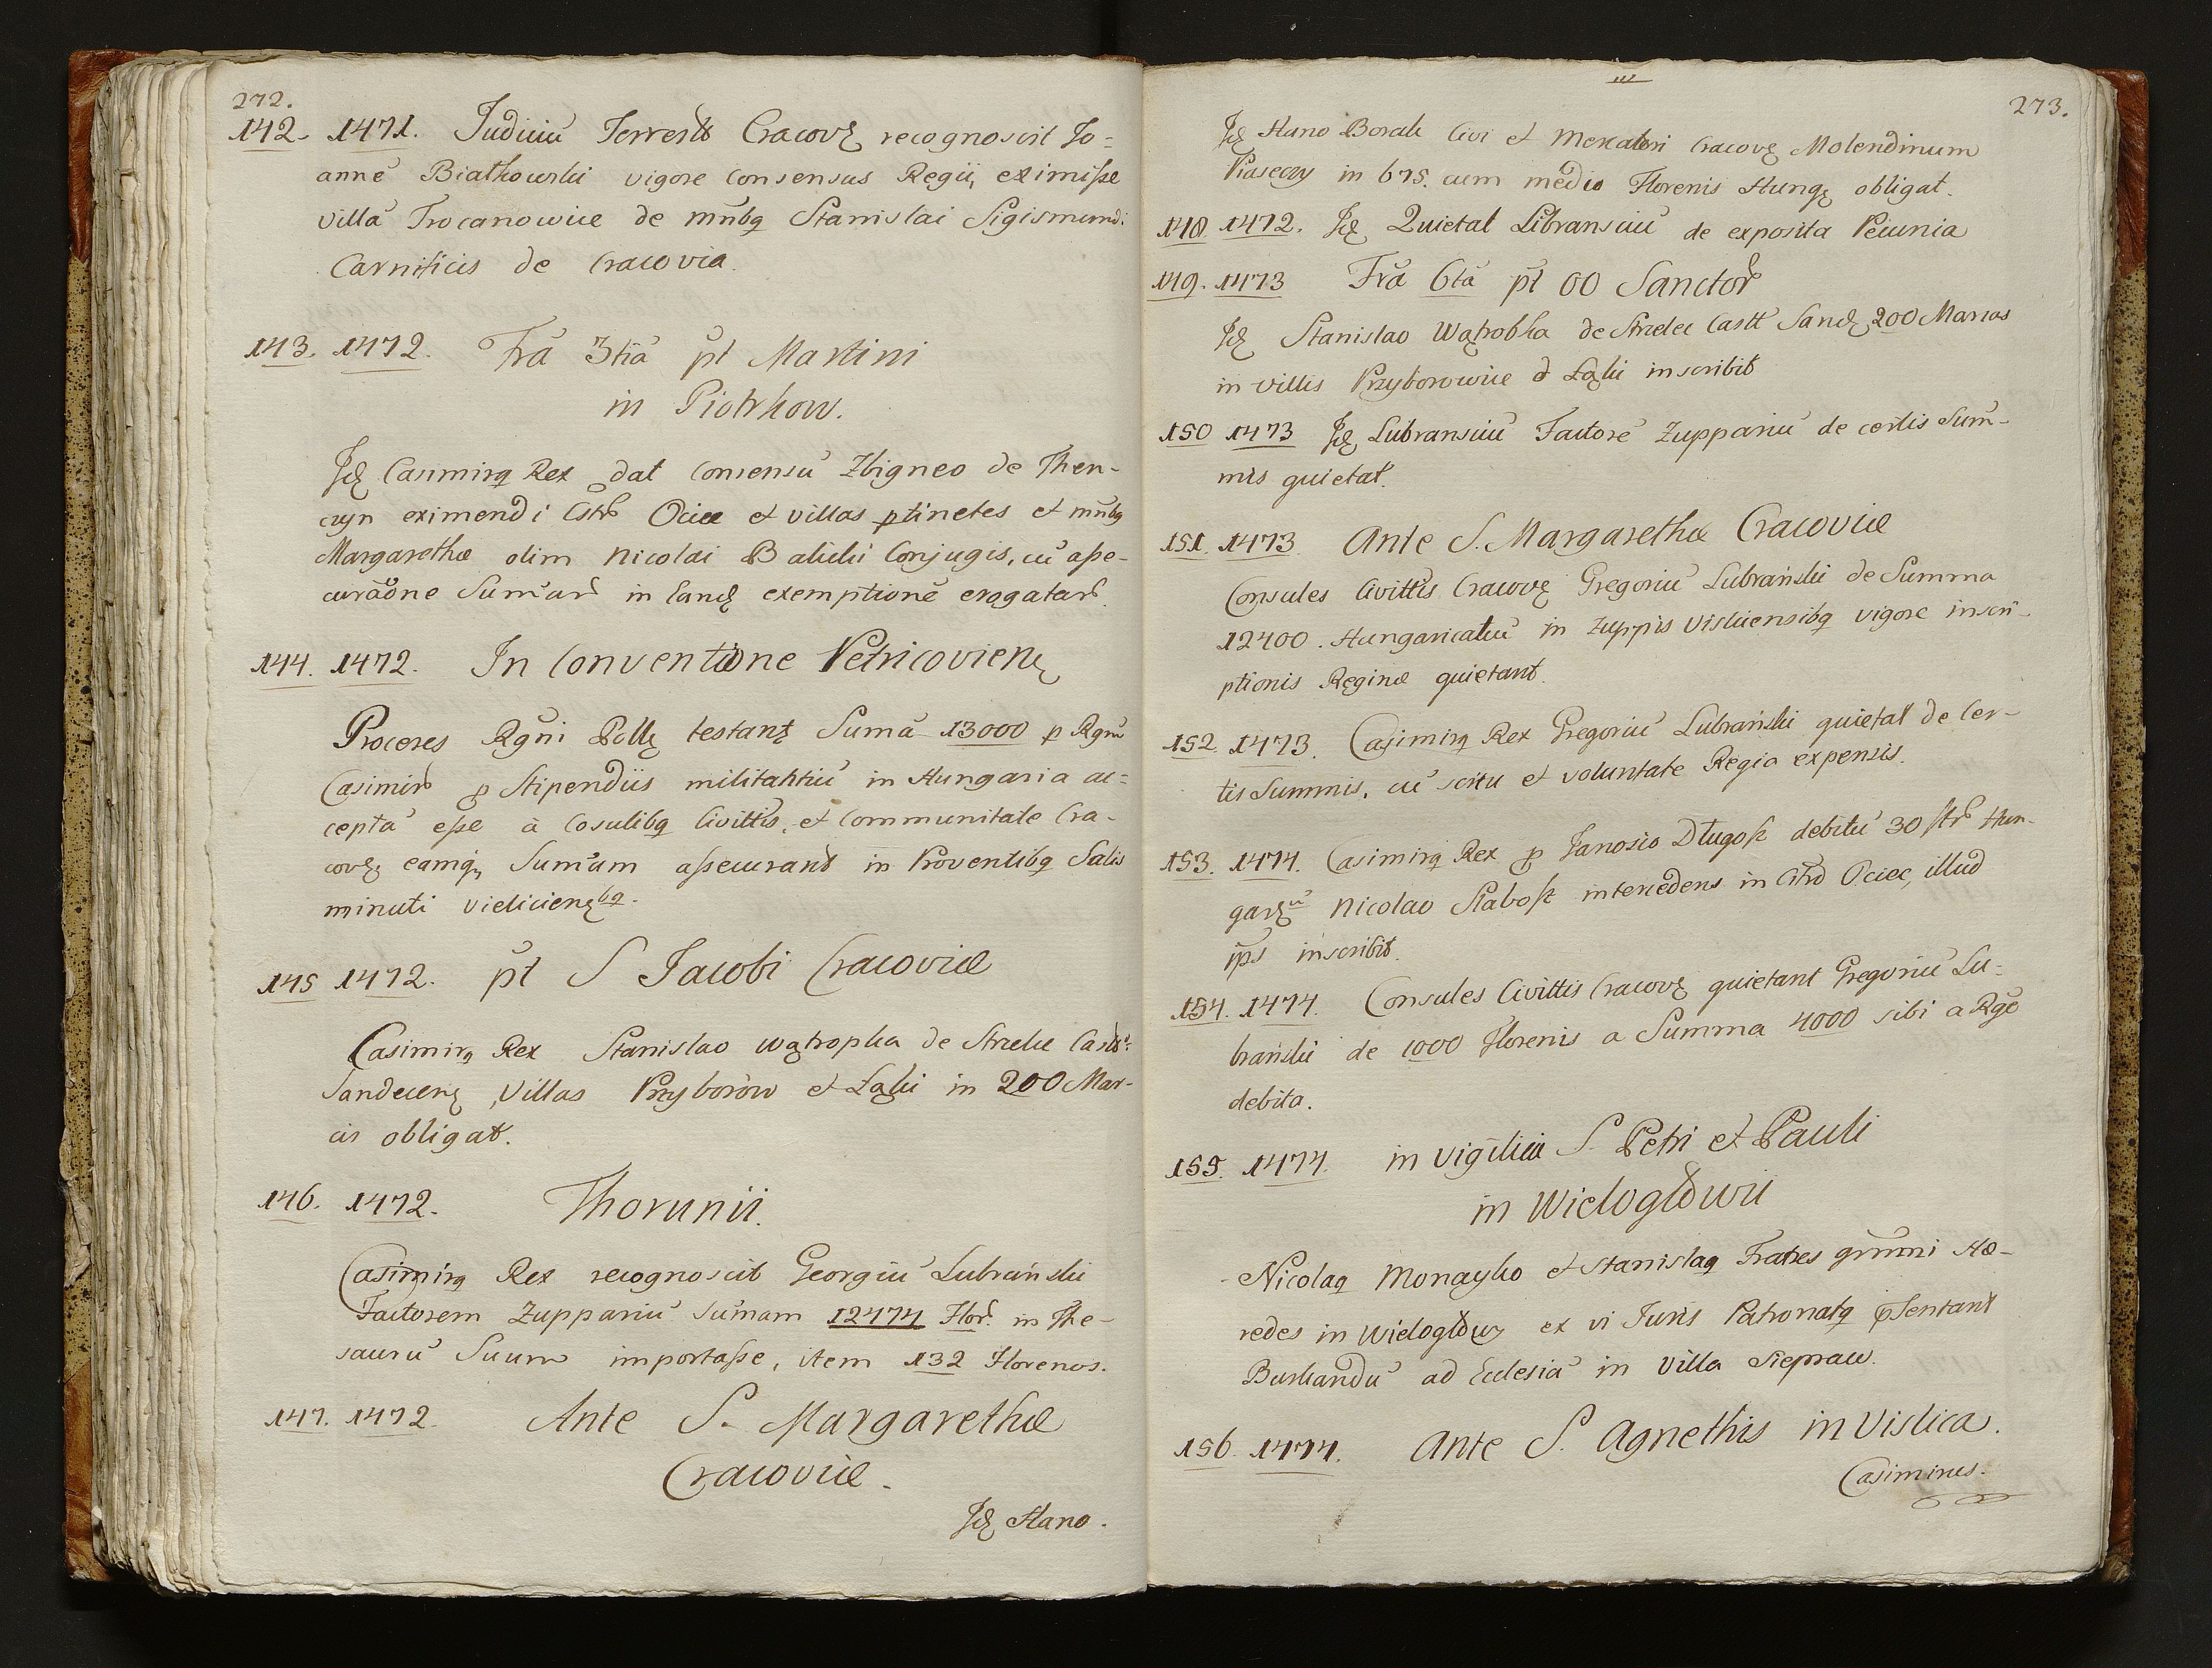 272.
142. 1471. Judiciū Terrestr Cracovę recognoscit Jo=
annē Biatkowski vigore Consensus Regii, eximiſse
villā Trocanowice de mn̄bq Stanislai Sigismundi
Carnificis de Cracovia.
143. 1472. Fr̄a 3tiā pt Martini
in Piotrkow.
Jdę Casimirq Rex dat Consensū Zbigneo de Then-
czyn eximendi Cstr Ociec et villas ptinetes et mn̄bq
Margarethæ olim Nicolai Balicki Conjugis, cū aſse-
curāōne Sum̄ar in eandę exemptionē erogatar.
144. 1472. In Conventione Petricovienę
Proceres Rgn̄i Pollę testantꝫ Sum̄ā 13000 p Rgm̄
Casimirū p Stipendiis militantiū in Hungaria ac=
ceptā eſse à Cosulibq Civittis, et Communitate Cra-
covę eamq, Sum̄am aſsecurant in Proventibq Salis
minuti Vieliciensbq.
145 1472. pt S Jacobi Cracoviæ
Casimirq Rex Stanislao Wątropka de Strzelce Castr:
Sandecenę, Villas Przyborów et Łąki in 200 Mar-
cis obligat.
146. 1472. Thorunii.
Casimirq Rex recognoscit Georgiū Lubrański
Factorem Zuppariū Sum̄am 12474 Flor. in The-
saurū Suum importaſse, item 132 Florenos.
147. 1472. Ante S. Margarethæ
Cracoviæ.
Jdę Hano.
273.
Jdę Hano Borak Civi et Mercatori Cracovę Molendinum
Piaseczy in 675. cum medio Florenis Hungę obligat.
148. 1472. Jdę Quietat Libransciū de exposita Pecunia
149. 1473 Fr̄a 6tā pt OO Sanctor
Jdę Stanislao Wątrobka de Strzelce Castt Sandę 200 Marcas
in villis Przyborowice & Łąki inscribit
150 1473 Jdę Lubransciū Factorē Zuppariū de certis Sum̄-
mis quietat.
151. 1473 Ante S. Margarethæ Cracoviæ
Consules Civittis Cracovę Gregoriū Lubrański de Summa
12400. Hungaricaliū in Zuppis Visliciensibq vigore inscri-
ptionis Reginæ quietant.
152. 1473. Casimirq Rex Gregoriū Lubrański quietat de Cer-
tis Summis, cū scitu et voluntate Regia expensis.
153. 1474. Casimirq Rex p Janosio Długoſz debitū 30 fłr Hun-
garꝫū Nicolao Słaboſz intercedens in Cstrō Ociec, illud
ip̄s inscribit.
154. 1474. Consules Civittis Cracovę quietant Gregoriū Lu=
brański de 1000 Florenis a Summa 4000 sibi a Rge
debita.
155. 1474. in vigilia S. Petri et Pauli
in Wielogłowii
Nicolaq Monayko et Stanislaq Fratres grm̄ni Hæ-
redes in Wielogłowy ex vi Juris Patronatq pſentant
Burkandū ad Ecclesiā in Villa Siepraw.
156. 1474. Ante S. Agnethis in Vislica.
Casimirus.